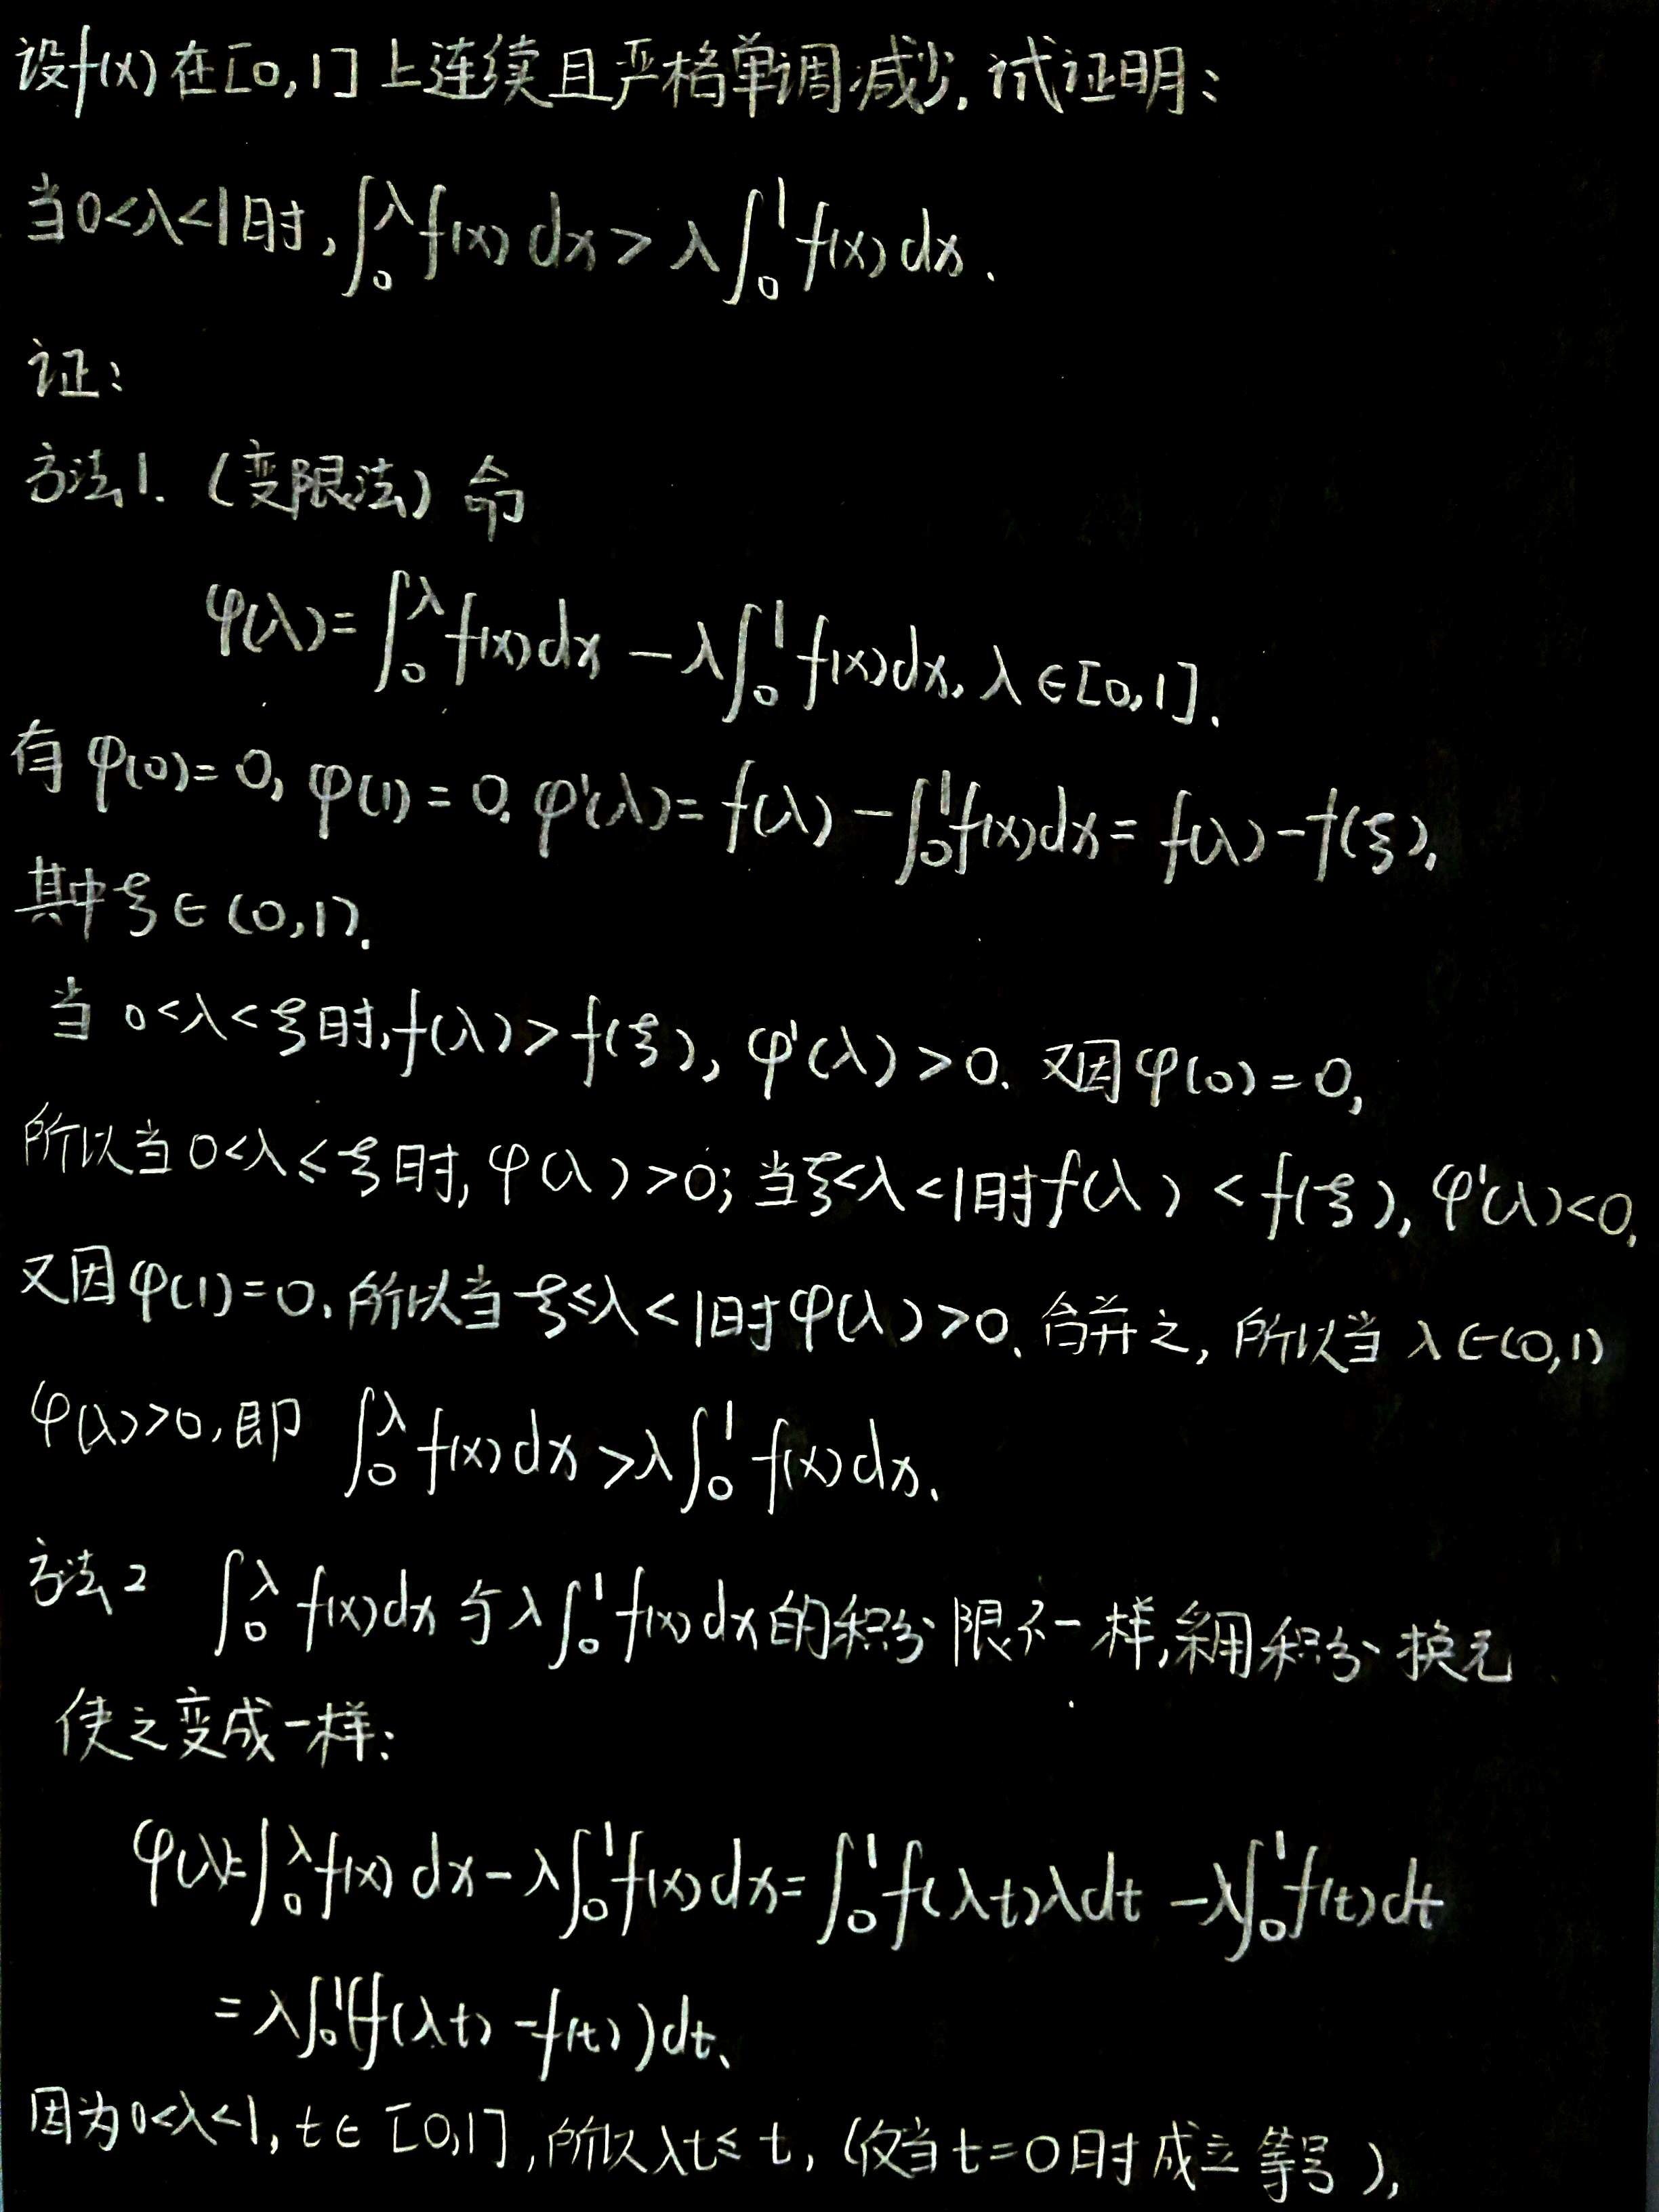 设f(x)在[0,1]上连续且严格单调减少,试证明:
当0<λ<1时,∫₀^λ f(x)dx>λ∫₀¹f(x)dx.
证:
方法1.(变限法)命
φ(λ)=∫₀^λ f(x)dx-λ∫₀¹f(x)dx,λ∈[0,1].
有φ(0)=0,φ(1)=0.φ'(λ)=f(λ)-∫₀¹f(x)dx=f(λ)-f(ξ),
其中ξ∈(0,1).
当0<λ<ξ时,f(λ)>f(ξ),φ'(λ)>0.又因φ(0)=0,
所以当0<λ≤ξ时,φ(λ)>0;当ξ<λ<1时f(λ)<f(ξ),φ'(λ)<0,
又因φ(1)=0.所以当ξ≤λ<1时φ(λ)>0.合并之,所以当λ∈(0,1)
φ(λ)>0,即 ∫₀^λ f(x)dx>λ∫₀¹f(x)dx.
方法2 ∫₀^λ f(x)dx与λ∫₀¹f(x)dx的积分限不一样,采用积分换元
使之变成一样:
φ(λ)=∫₀^λ f(x)dx-λ∫₀¹f(x)dx=∫₀¹f(λt)λdt-λ∫₀¹f(t)dt
=λ∫₀¹(f(λt)-f(t))dt.
因为0<λ<1,t∈[0,1],所以λt≤t,(仅当t=0时成立等号),